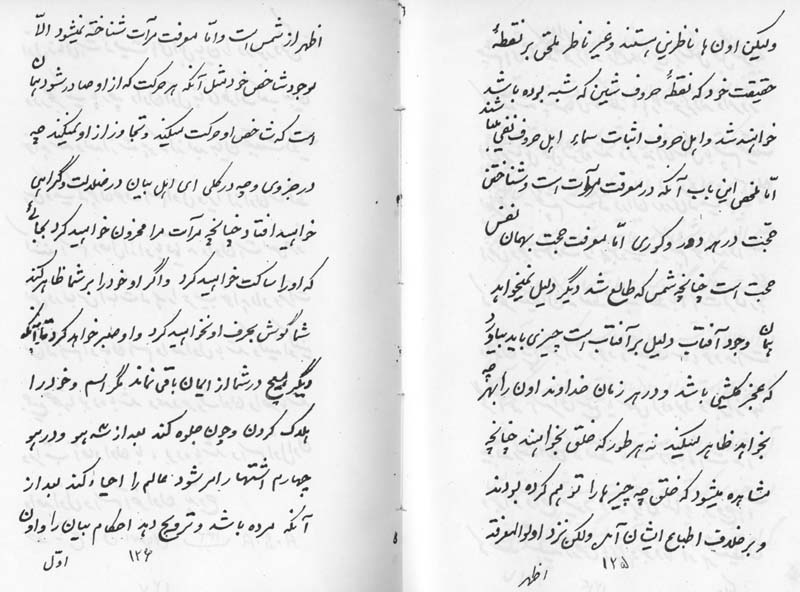 ولیکن اون ها ناظرین هستند و غیر ناظر ملحق بر نقطهٔ
حقیقت خود که نقطهٔ حروف شین که شبه بوده باشد
خواهند شد و اهل حروف اثبات سماء اهل حروف نفی
امّا ملخص این باب آنکه در معرفت مرآت است و شناختن
حجّت در هر دهر و کوری امّا معرفت حجت بهمان نفس
حجت است چنانچه شمس که طالع شد دیگر دلیل نمیخواهد
همان وجود آفتاب دلیل بر آفتاب است چیزی باید بیاورد
که عجز کلشیئی باشد و در هر زمان خداوند اون را بهرچه
بخواهد ظاهر میکند نه هر طور که خلق بخواهند چنانچه
مشاهده میشود که خلق چه چیزها را توهم کرده بودند
و بر خلاف اطباع ایشان آمد ولکن نزد اولو المعرفة
۱۲۵
اظهر
اظهر از شمس است و امّا معرفت مرآت شناخته نمیشود الاّ
بوجود شاخص خود مثل آنکه هر حرکت که از او صادر شود همان
است که شاخص او حرکت میکند و تجاوز از او نمیکند چه
در جزوی و چه در کلی ای اهل بیان در ضلالت و گمراهی
خواهید افتاد چنانچه مرآت مرا محزون خواهید کرد بجائی
که او را ساکت خواهید کرد و اگر او خود را بر شما ظاهر کند
شما گوش بحرف او نخواهید کرد و او صبر خواهد کرد تا آنکه
دیگر هیچ در شما از ایمان باقی نماند مگر اسم و خود را
هلاک کردن و چون جلوه کند بعد از سه هو و در هو
چهارم اشتهار امر شود عالم را احیاء کند بعد از
آنکه مرده باشد و ترویج دهد احکام بیان را و اون
۱۲۶
اوّل